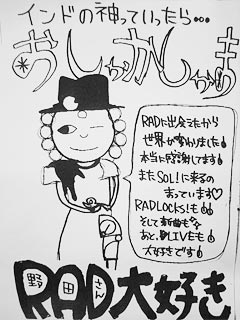 インドの神っていったら…
おしゃかしゃま
RADに出会えたから
世界が変わりました!
本当に感謝してます!
またSOL!に来るの
まっています♡
RADLOCKS!も!
そして新曲も
あと、LIVEも
大好きです!
野田さん
RAD大好き